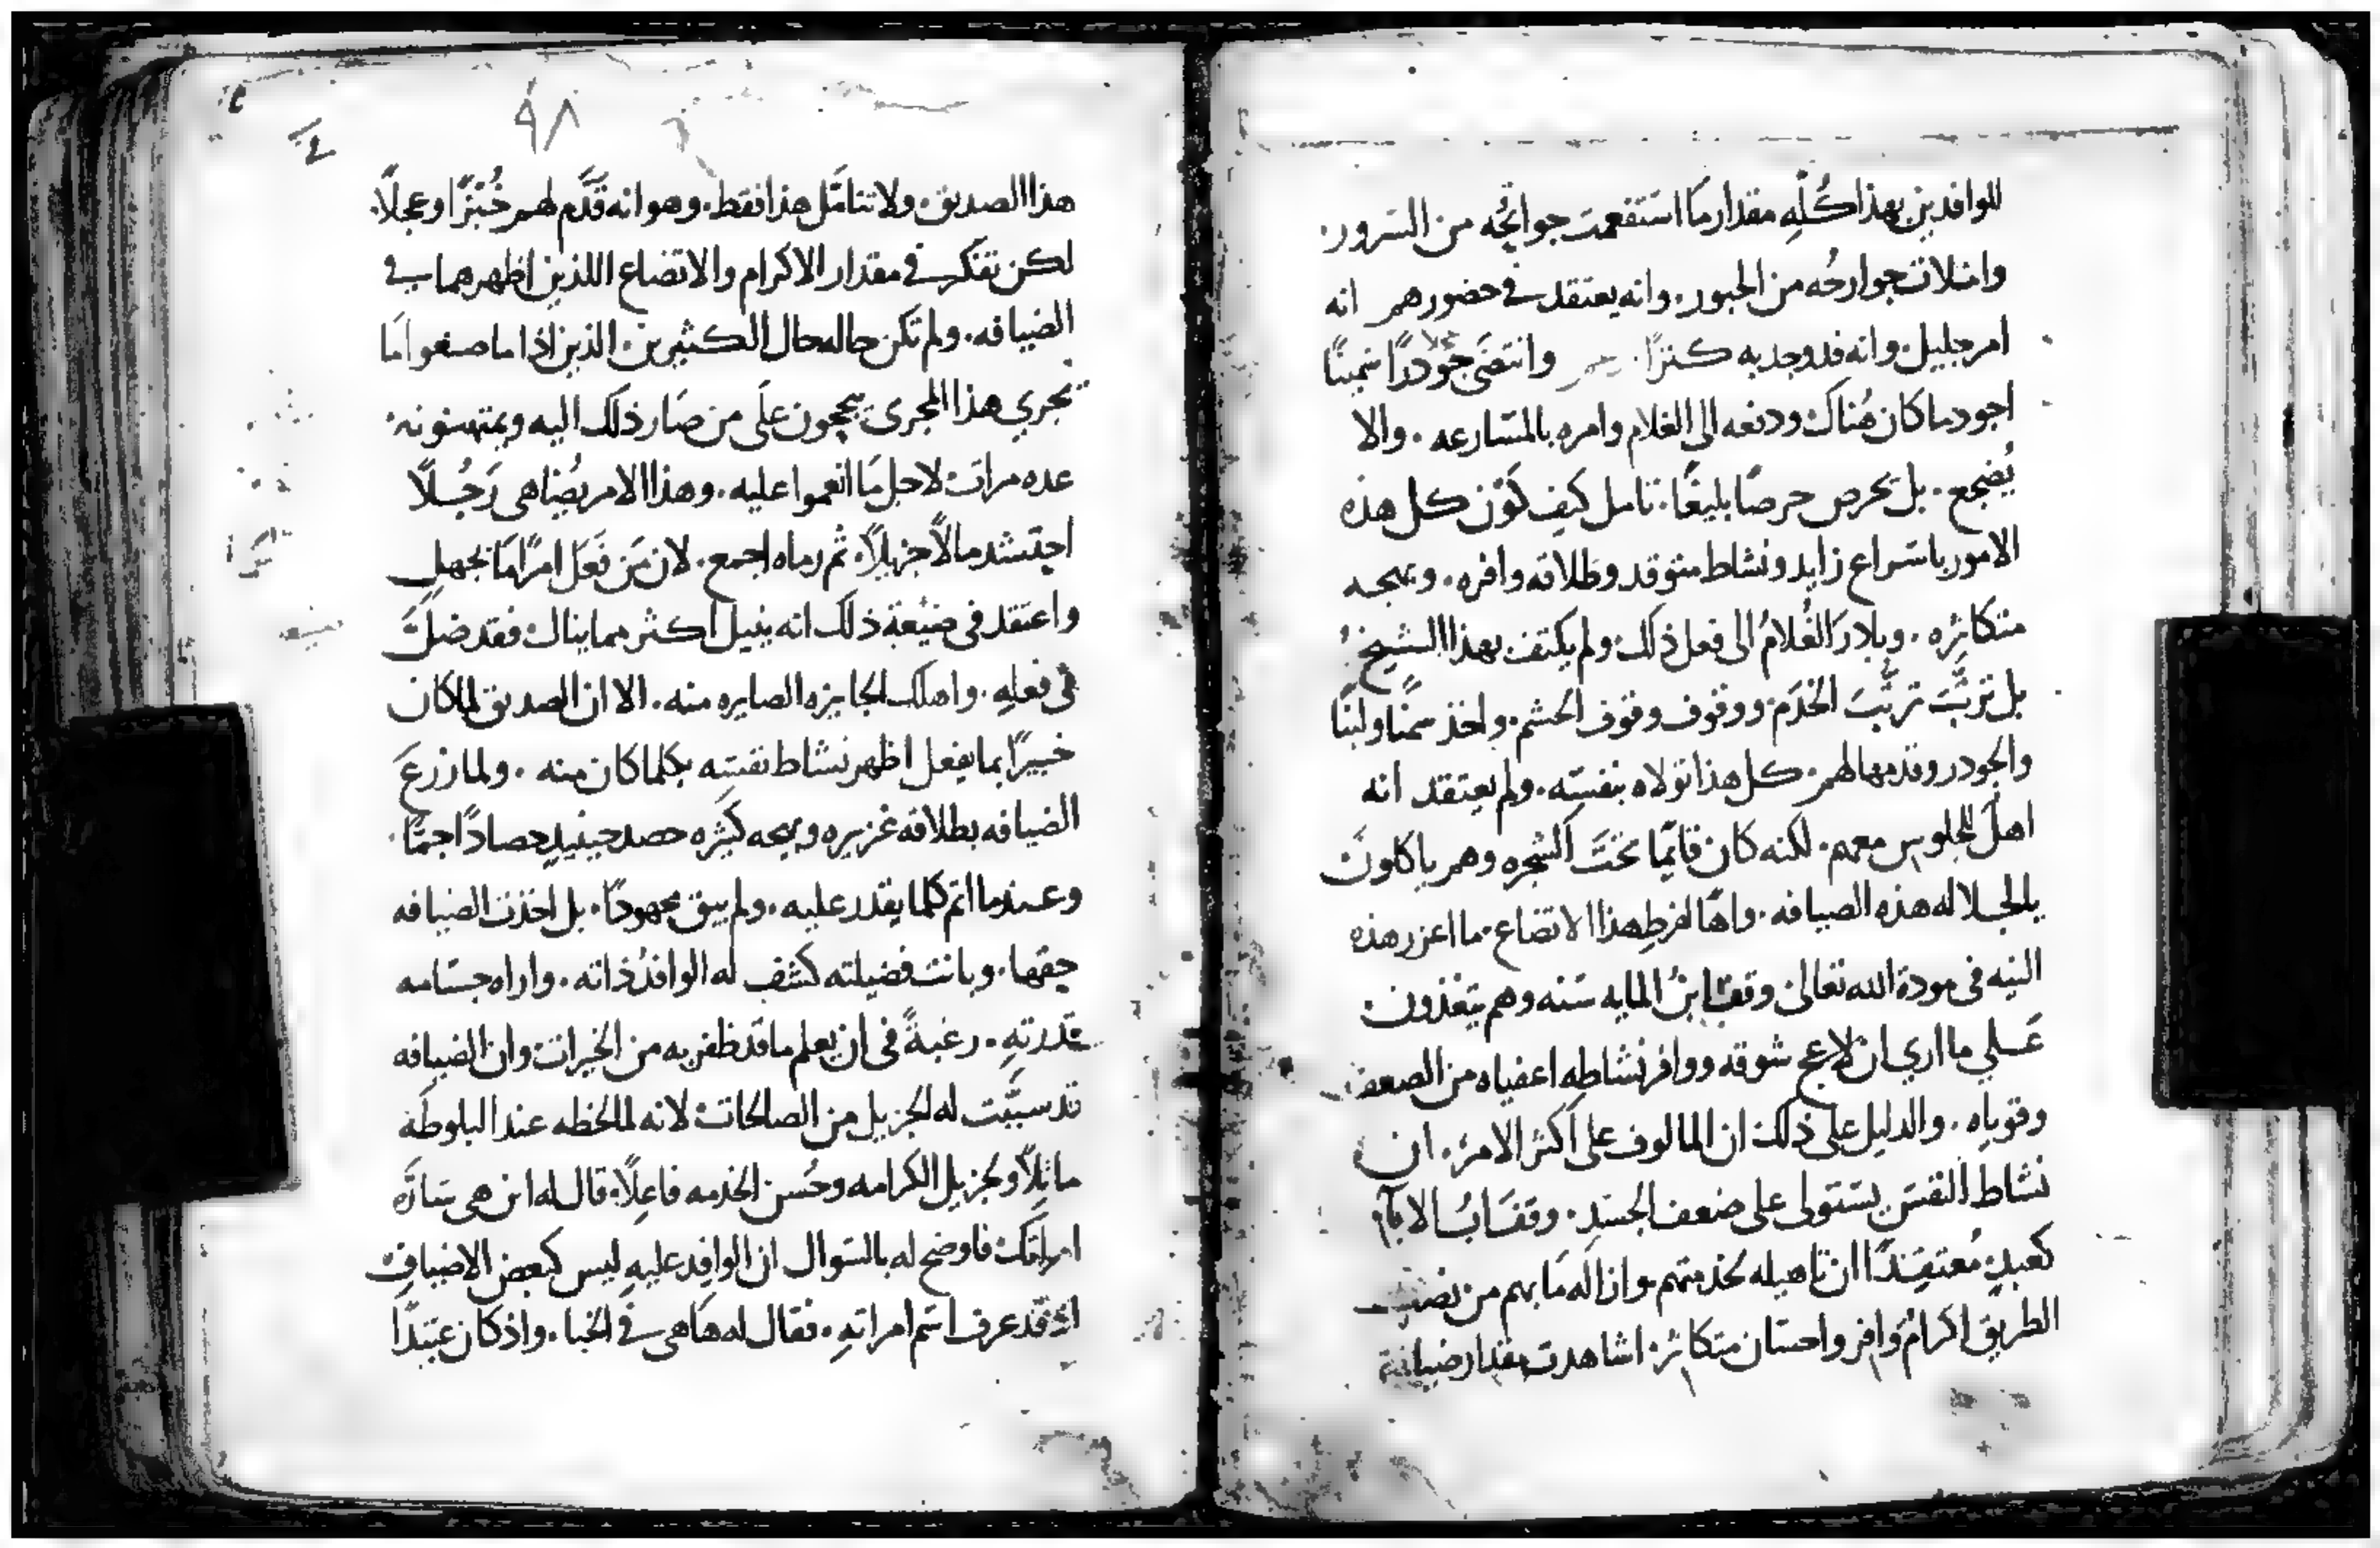 للوافدين بهذا كُلِّهِ مقدار ما استفعمت جوانحُه من السَرور.
وامتلات جوارحُه من الحبور. وانه يعتقد في حضورهم انه
امر جليل. وانه قد وجد به كنزًا. وانتقى جُودرًا سَمينًا
اجود ما كان هُناك ودفعه الى الغلام وامره بالمسَارعه. والا
يُضجع. بل يحرص حرصًا بليغًا. تامل كيف كوَّن كل هذه
الامور باسَراع زايد ونشاط متوقد وطلاقه وافره. وبهجه
متكاثره. وبادرَ الغُلامُ الى فعل ذلك ولم يكتف بهذا الشيخُ
بل ترتَّبَ ترتُّبَ الخدَم ووقوف وقوف الحشم. واخذ سَمنًا ولبنًا
والجودر وقدمها لهم. كل هذا تولاه بنفسَه. ولم يعتقد انه
اهل للجلوس معهم. لكنه كان قايمًا تحتَ الشجره وهم ياكلونَ
يالجلاله هذه الضيافه. واهًا لفرطِ هذا الاتضاع. ما اعزر هذه
النيه في مودة الله تعالى وقفَ ابنُ المايه سَنه وهم يتغذون
عَلي ما اري ان لاعج شوقه ووافر نشاطِه اعفياه من الضعف
وقوياه. والدليل على ذلك ان المالوف على اكثر الامر. ان
نشاط النفسَ يسَتولى على ضعف الجسَدِ. وقفَ ابُ الاباء
كعبدٍ مُعتقِدًا ان تاهيله لخدمتهم وازاله مَا بهم من نصَب
الطريق اكرامُ وافر واحسَان متكاثر. اشاهدت مقدار ضيافة
٩٨
هذا الصديق. ولا تتامَّل هذا فقط. وهو انه قَدَّم لهم خُبزًا وعجلًا.
لكن تفكر في مقدار الاكرام والاتضاع اللذين اظهرهما في
الضيافه. ولم تكن حاله حال الكثيرين. الذين اذا ما صنعوا مَا
يجري هذا المجرى يبجحون علَى من صَار ذلك اليه ويمتهنونه
عده مرات لاجل مَا انعموا عليه. وهذا الامر يُضاهى رَجُلًا
احتشد مالًا جزيلًا. ثم رماه اجمع. لان مَن فَعَل امرًا مَا بجهلٍ
واعتقد في صَنيعَة ذلك انه ينيل اكثر مما ينال فقد ضلَّ
في فعلهِ. واهلك الجايزه الصايره منه. الا ان الصديق لما كان
خبيرًا بما يفعل اظهر نشاط نفسَه بكلما كان منه. ولما زرعَ
الضيافه بطلاقه غزيره وبهجه كثيره حصد حينيدٍ حصادًا جمًّا.
وعندما اتم كلما يقدر عليه. ولم يبق مجهودًا. بل اخذت الضيافه
حقها. وبانت فضيلته كشف له الوافدُ ذاته. واراه جسَامه
قدرتهِ. رغبةً في ان يعلم ما قد ظفر به من الخيرات وان الضيافه
قد سببَّت له الجزيل من الصالحات لانه لما لحظه عند البلوطَه
ماثلًا وبجزيل الكرامه وحُسن الخدمه فاعِلًا. قال له اين هى سَارَّه
امراتك فاوضح له بالسَوال ان الوافِد عليهِ ليس كبعض الاضيافِ
اذ قد عرف اسَم امراتهِ. فقال له هَاهى في الخبا. واذ كان عتيدًا